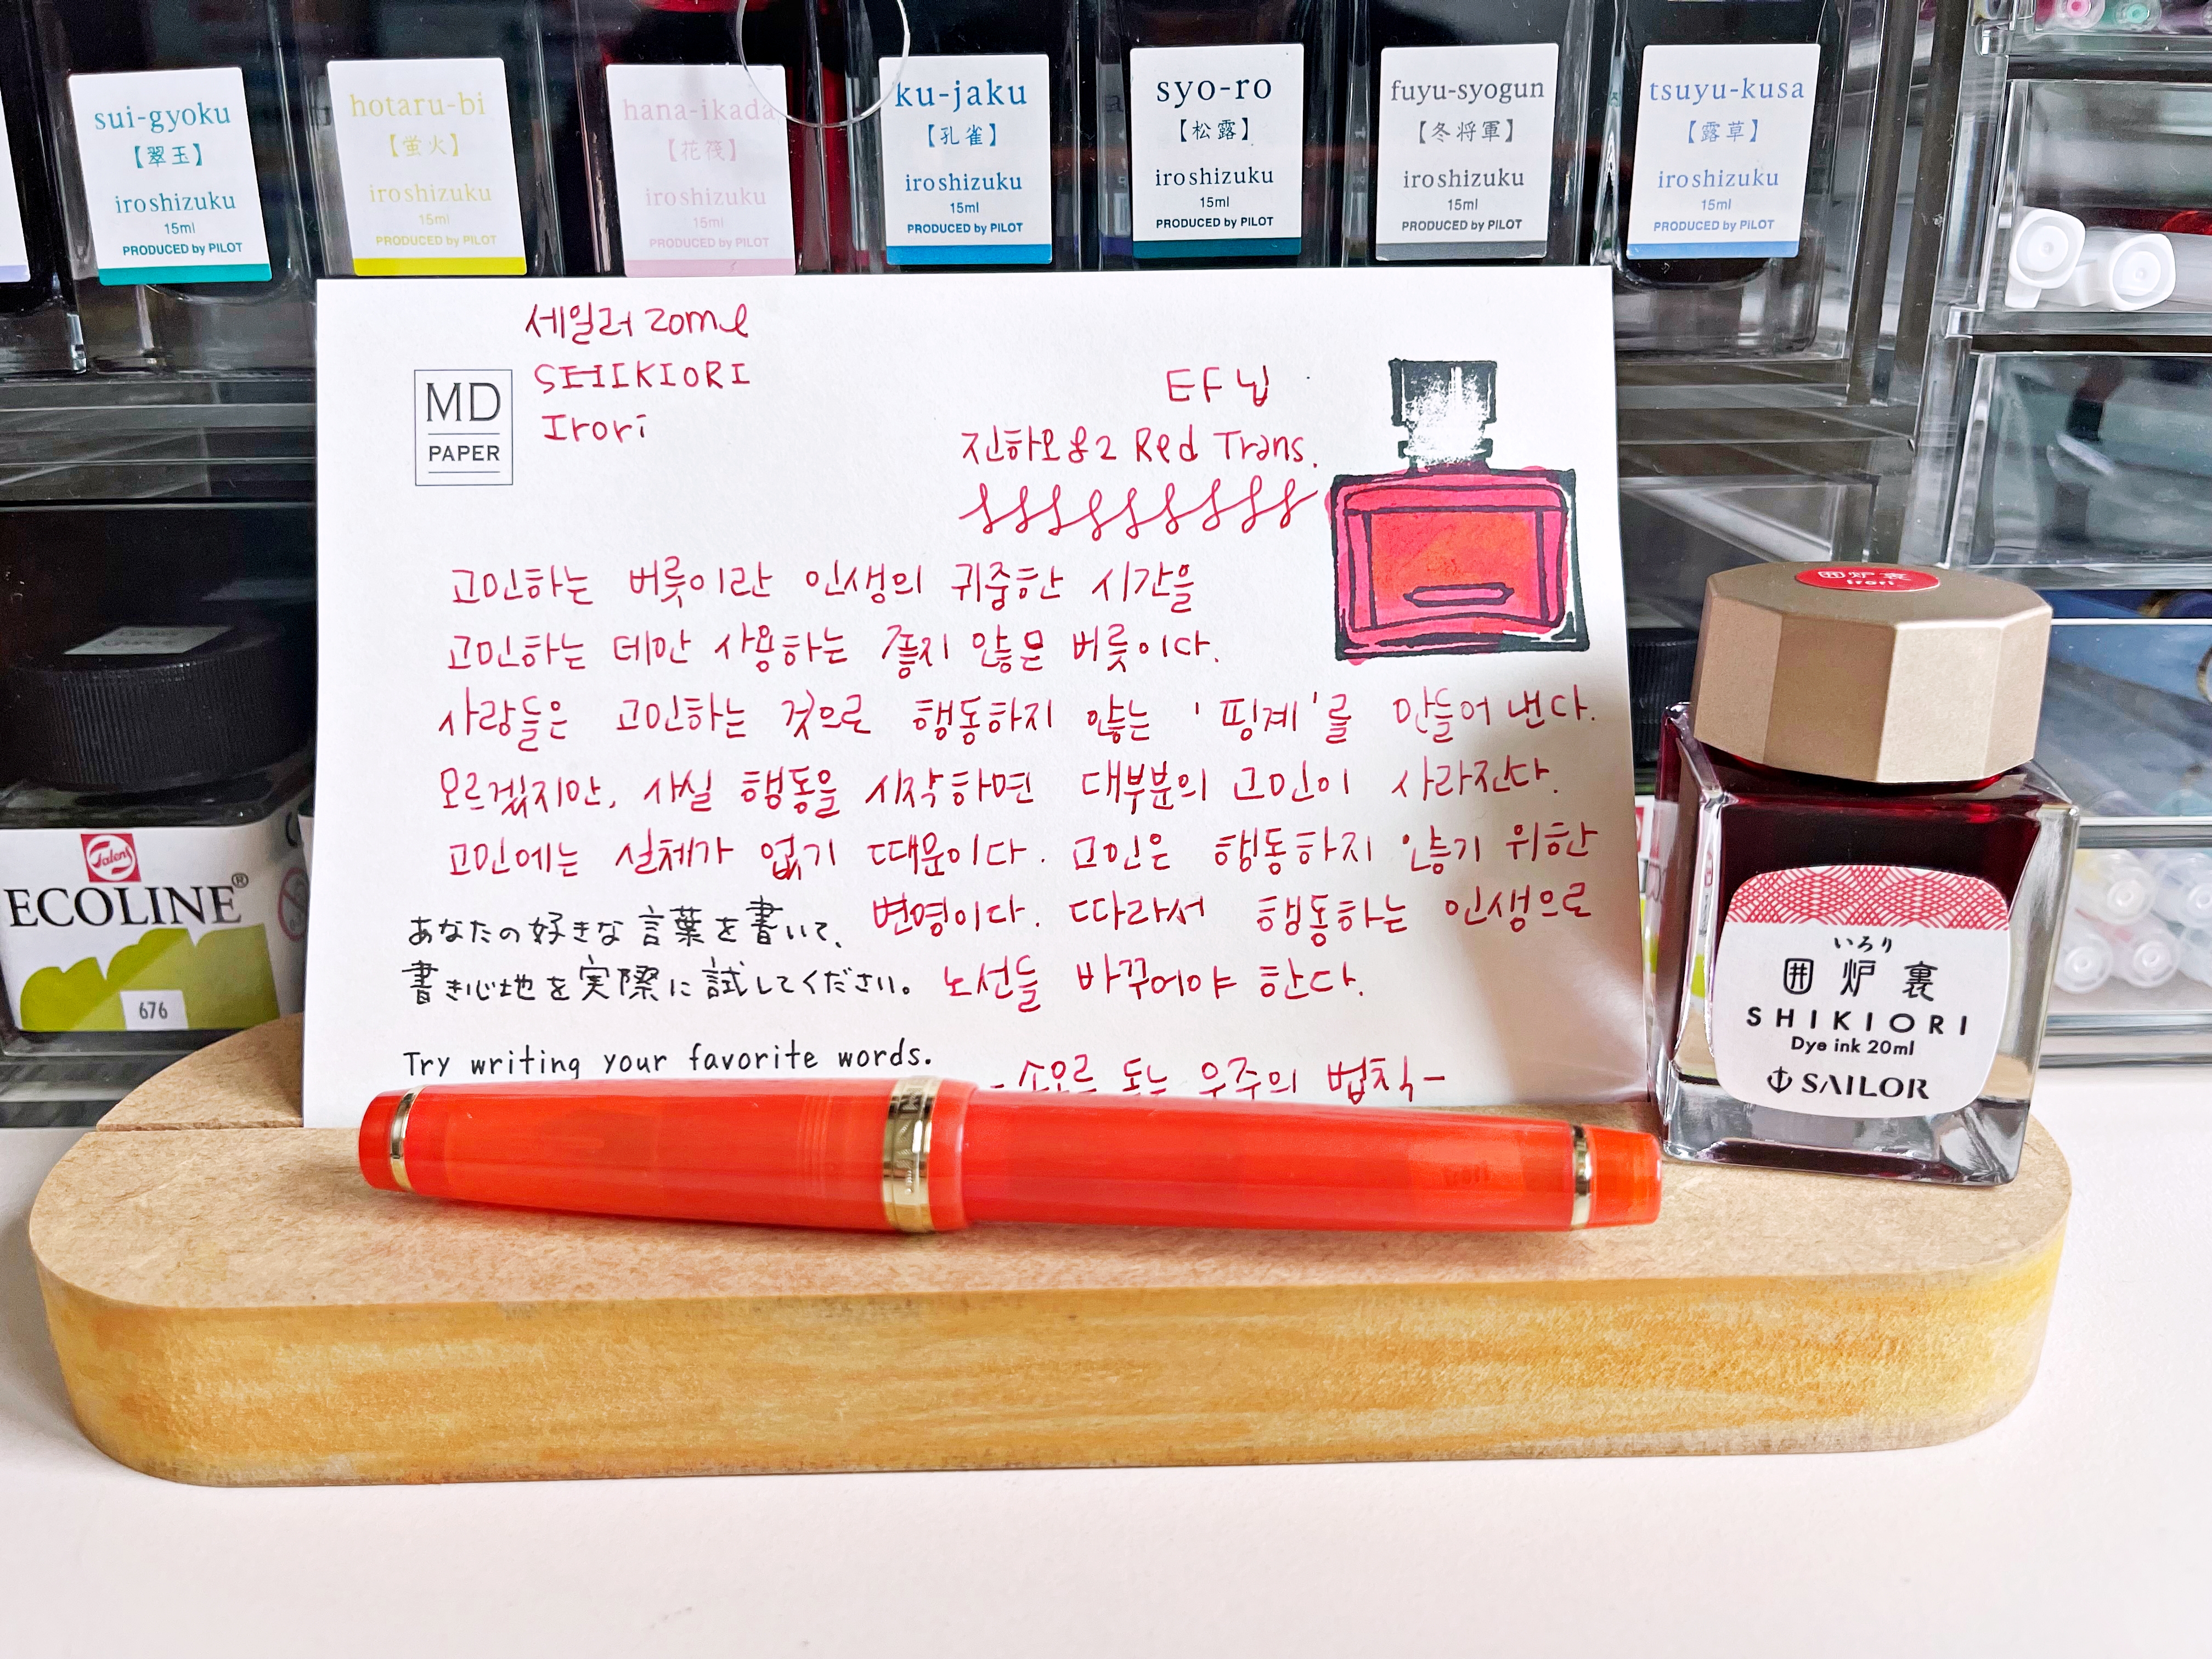 sui-gyoku
【翠玉】
iroshizuku
15ml
PRODUCED by PILOT
hotaru-bi
【蛍火】
iroshizuku
15ml
PRODUCED by PILOT
hana-ikada
【花筏】
iroshizuku
15ml
PRODUCED by PILOT
ku-jaku
【孔雀】
iroshizuku
15ml
PRODUCED by PILOT
syo-ro
【松露】
iroshizuku
15ml
PRODUCED by PILOT
fuyu-syogun
【冬将軍】
iroshizuku
15ml
PRODUCED by PILOT
tsuyu-kusa
【露草】
iroshizuku
15ml
PRODUCED by PILOT
세일러 20ml
SHIKIORI
Irori
MD
PAPER
EF 닙
진하오 82 Red Trans.
고민하는 버릇이란 인생의 귀중한 시간을
고민하는 데만 사용하는 좋지 않은 버릇이다.
사람들은 고민하는 것으로 행동하지 않는 '핑계'를 만들어 낸다.
모르겠지만, 사실 행동을 시작하면 대부분의 고민이 사라진다.
고민에는 실체가 없기 때문이다. 고민은 행동하지 않기 위한
변명이다. 따라서 행동하는 인생으로
노선을 바꾸어야 한다.
あなたの好きな言葉を書いて、
書き心地を実際に試してください。
Try writing your favorite words.
-소오르 도는 우주의 법칙-
囲炉裏
Irori
いろり
囲炉裏
SHIKIORI
Dye ink 20ml
SAILOR
Talens
ECOLINE®
676
Irori